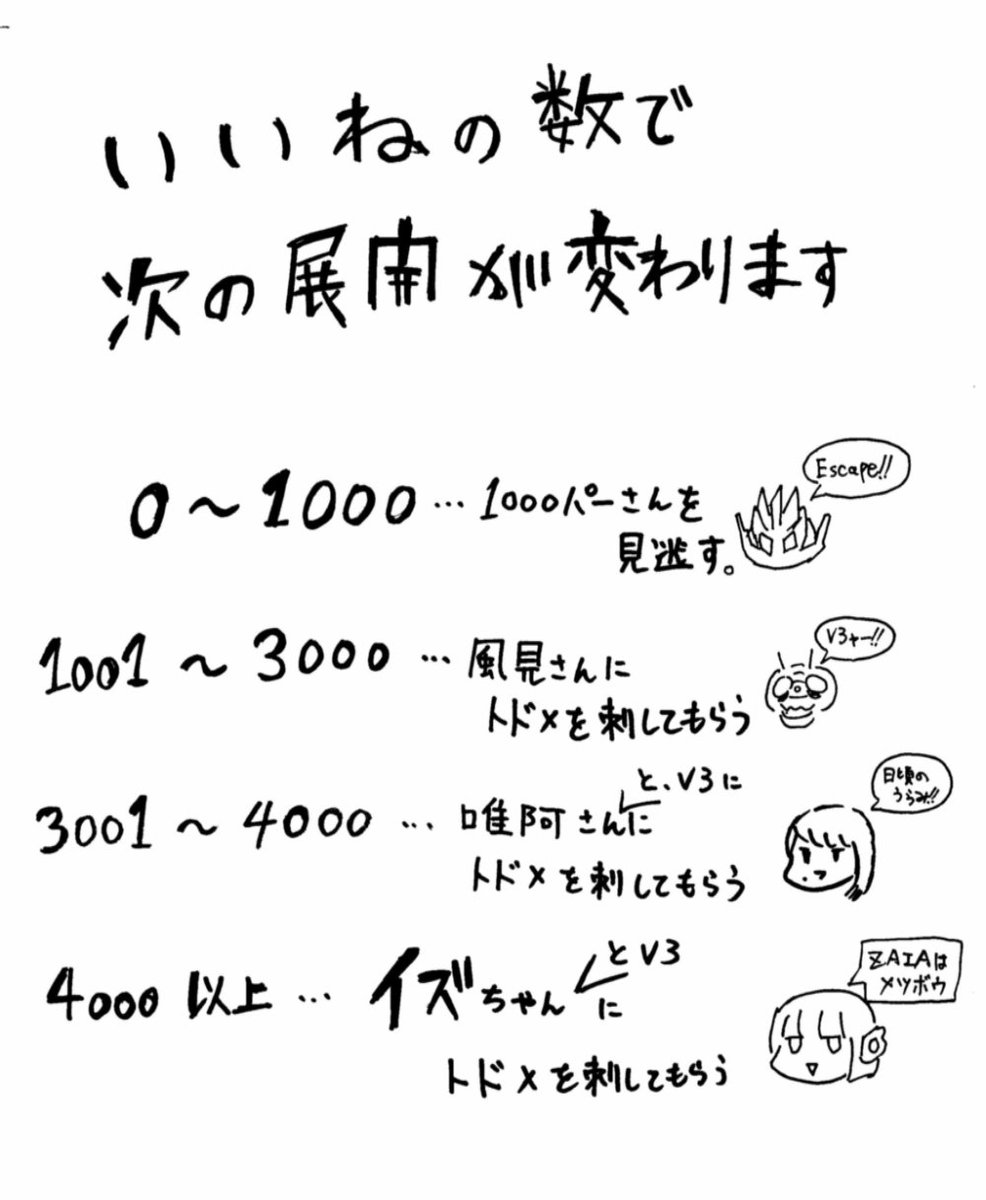 いいねの数で
次の展開が変わります
0～1000…1000パーさんを
見逃す。
Escape!!
1001～3000…風見さんに
トドメを刺してもらう
V3ャー!!
3001～4000…唯阿さんに
と、V3に
トドメを刺してもらう
日頃の
うらみ!!
4000以上…イズちゃんに
とV3
トドメを刺してもらう
ZAIAは
メツボウ